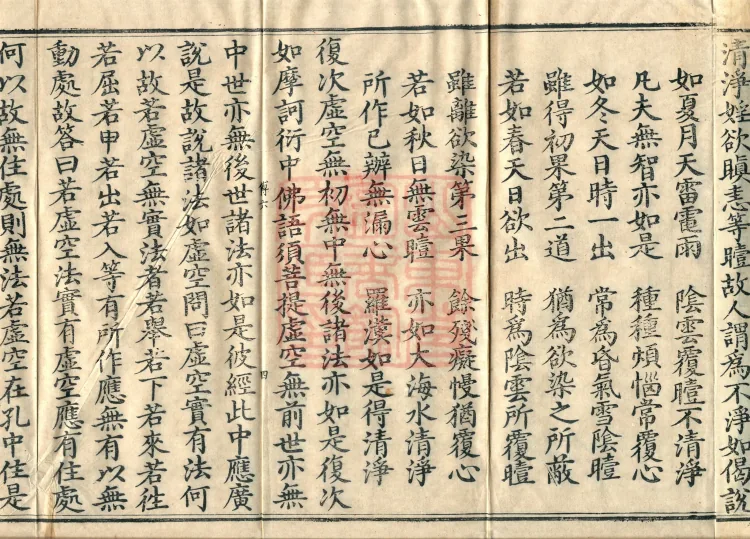 清淨婬欲瞋恚等曀故人謂為不淨如偈說
如夏月天雷電雨　陰雲覆曀不清淨
凡夫無智亦如是　種種煩惱常覆心
如冬天日時一出　常為昏氣雪陰曀
雖得初果第二道　猶為欲染之所蔽
若如春天日欲出　時為陰雲所覆曀
雖離欲染第三果　餘殘癡慢猶覆心
若如秋日無雲曀　亦如大海水清淨
所作已辦無漏心　羅漢如是得清淨
復次虛空無初無中無後諸法亦如是復次
如摩訶衍中佛語須菩提虛空無前世亦無
四
中世亦無後世諸法亦如是彼經此中應廣
說是故說諸法如虛空問曰虛空實有法何
以故若虛空無實法者若舉若下若來若往
若屈若申若出若入等有所作應無有以無
動處故答曰若虛空法實有虛空應有住處
何以故無住處則無法若虛空在孔中住是